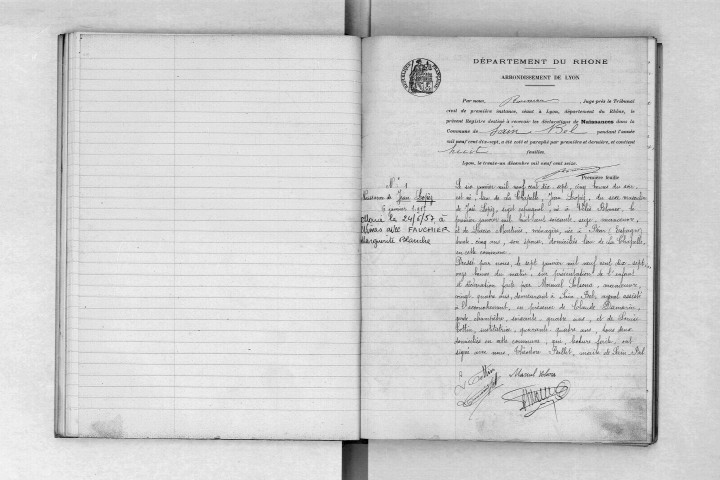 DÉPARTEMENT DU RHONE
ARRONDISSEMENT DE LYON
Par nous, Juge près le Tribunal
civil de première instance, séant à Lyon, département du Rhône, le
présent Registre destiné à recevoir les déclarations de Naissances dans la
Commune de Sain Bel pendant l'année
mil neuf cent dix-sept, a été coté et paraphé par première et dernière, et contient
feuilles.
Lyon, le trente-un décembre mil neuf cent seize.
Première feuille
N° 1
Naissance de Jean Lopèz
6 janvier 1917
Marié le 24/6/57 à
avec FAUCHIER
Marguerite Blanche
Le six janvier mil neuf cent dix sept, cinq heures du soir,
est né, lieu de La Chapelle, Jean Lopèz, du sexe masculin
de José Lopèz, sujet espagnol, né à Vélez Blanco, le
premier janvier mil huit cent soixante seize, manœuvre,
et de Martinéz, ménagère, née à (Espagne)
cinq ans, son épouse, domiciliés lieu de La Chapelle,
en cette commune.
Dressé par nous, le sept janvier mil neuf cent dix sept
onze heures du matin, sur présentation de l'enfant
et déclaration faite par Manuel manœuvre,
vingt quatre ans, demeurant à Sain Bel, ayant assisté
à l'accouchement, en présence de Claude
garde champêtre, soixante quatre ans, et de Louise
Cottin, institutrice, quarante quatre ans, tous deux
domiciliés en cette commune, qui, lecture faite, ont
signé avec nous, Théodore maire de Sain Bel
Cottin
Manuel